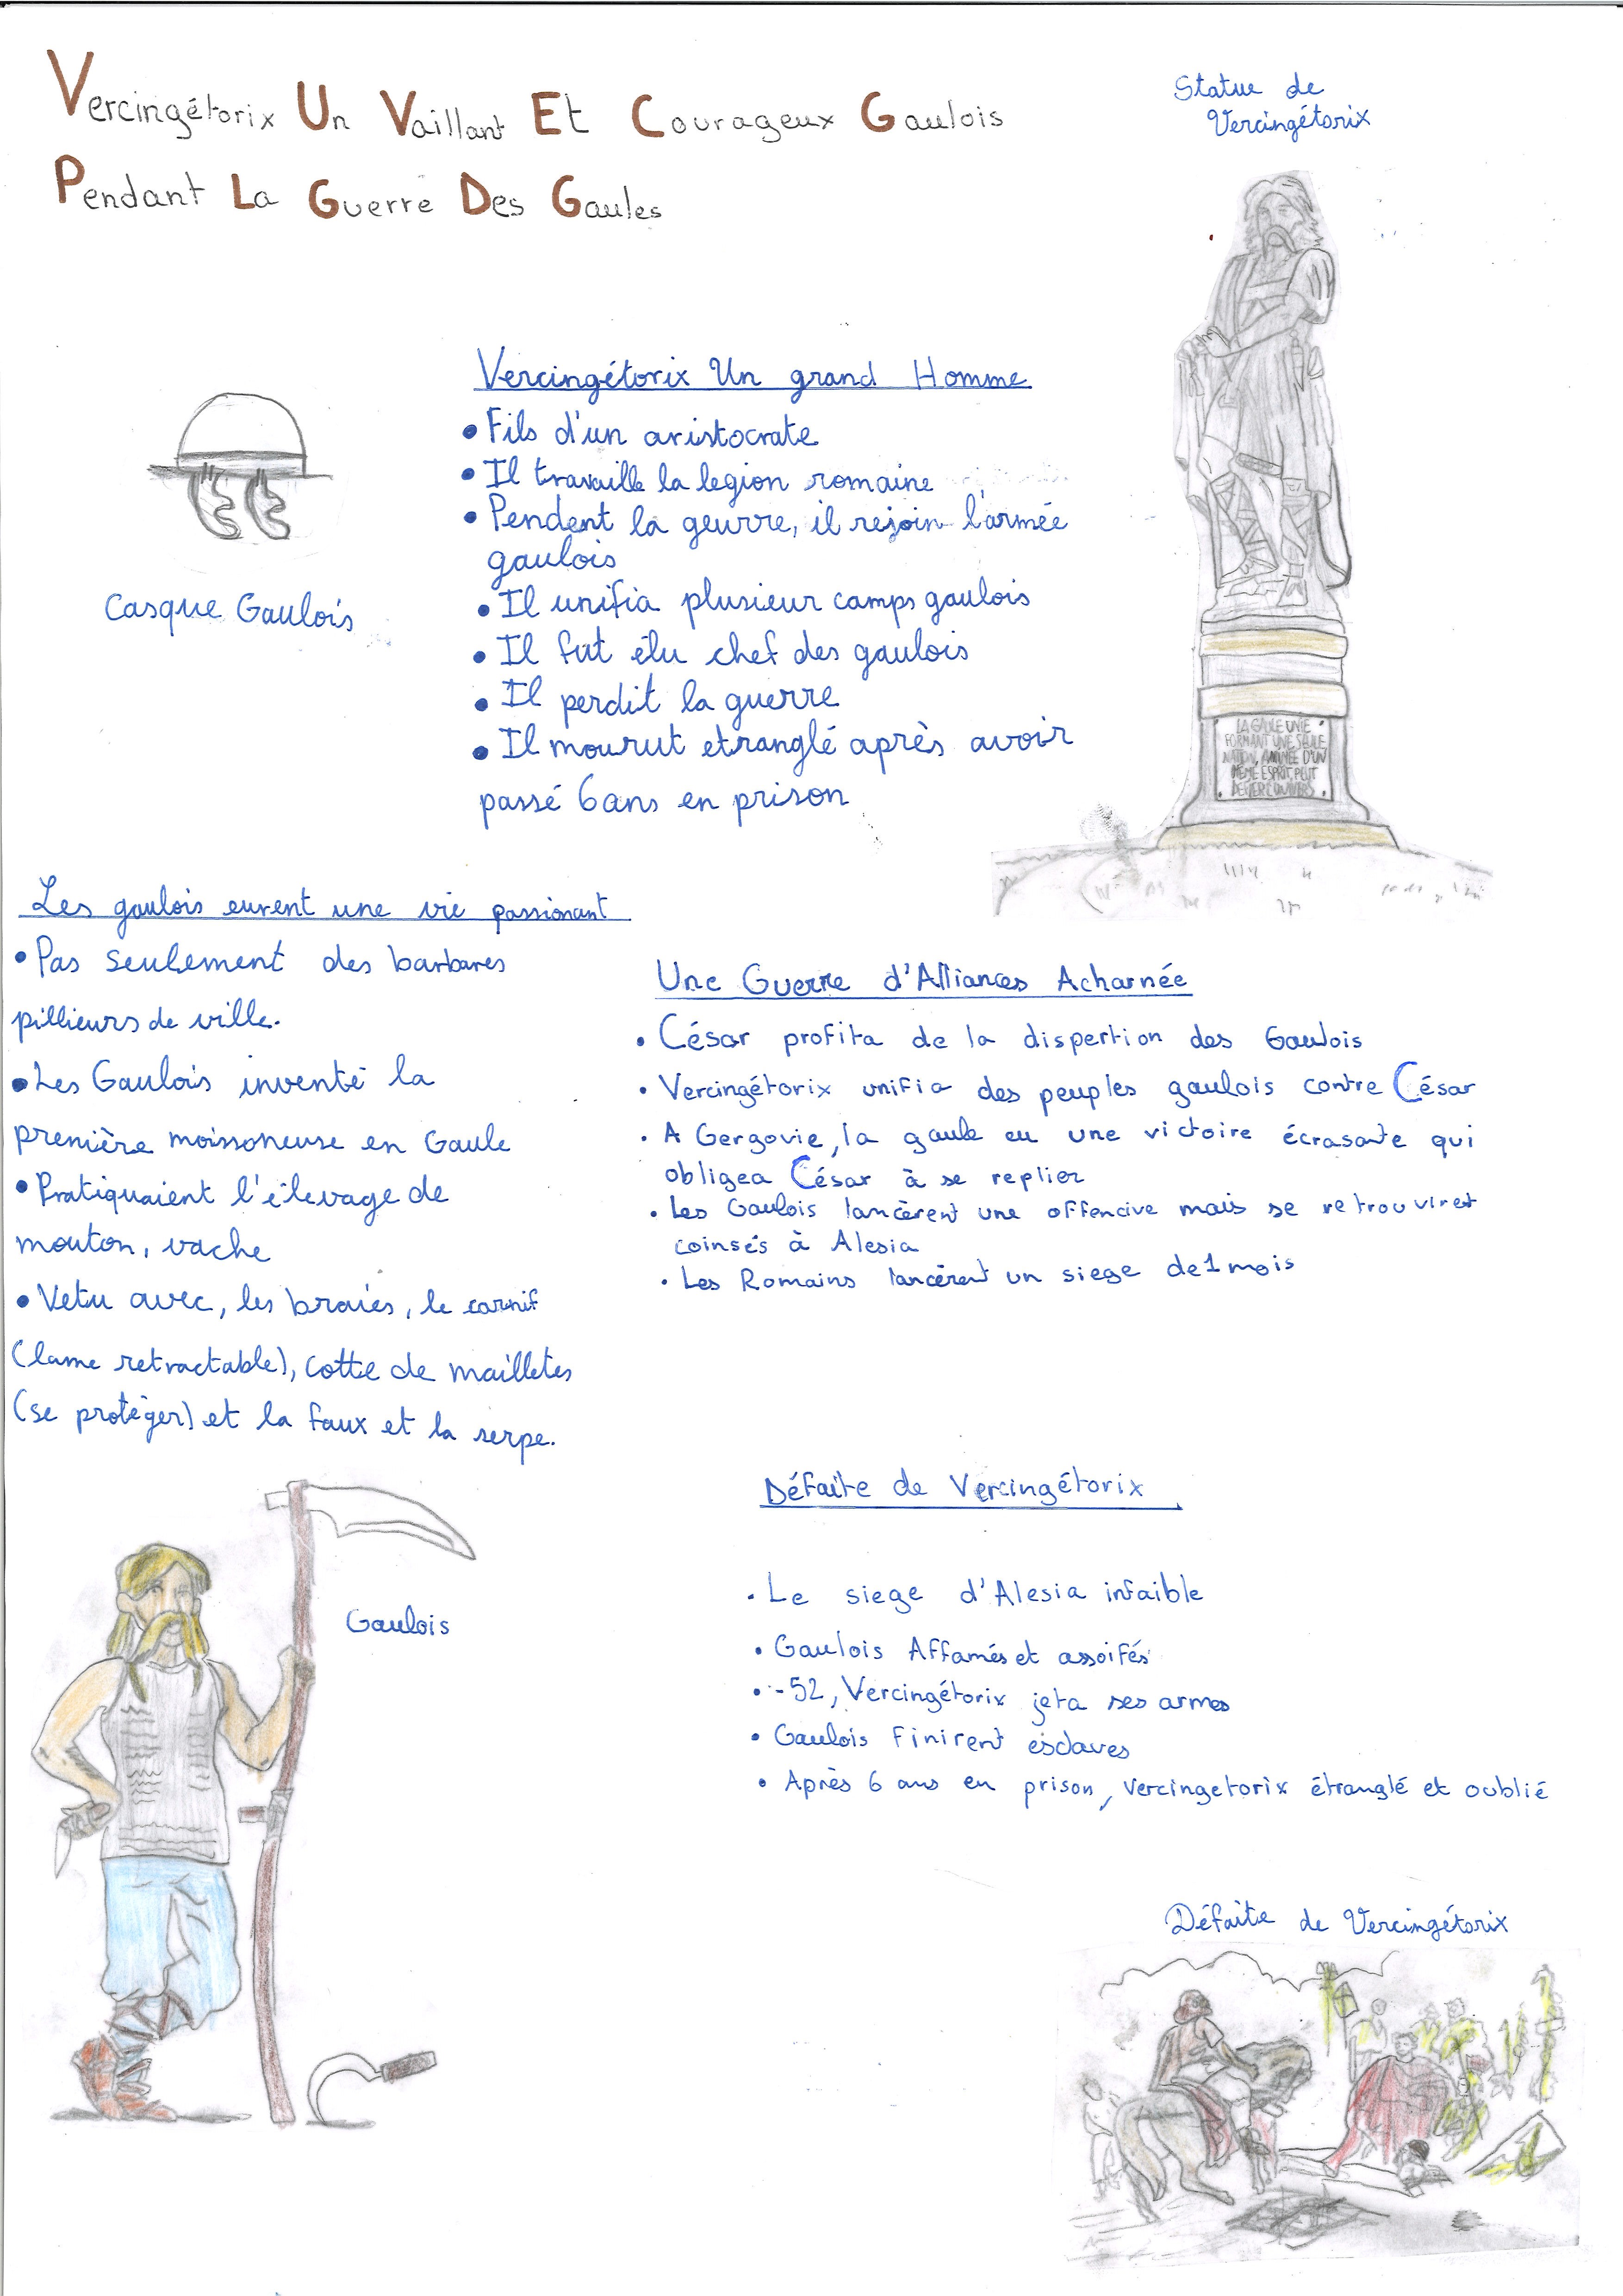 Vercingétorix Un Vaillant Et Courageux Gaulois
Pendant La Guerre Des Gaules
Statue de
Vercingétorix
Vercingétorix Un grand Homme
• Fils d'un aristocrate
• Il travaille la legion romaine
• Pendent la geurre, il rejoin l'armée
gaulois
• Il unifia plusieur camps gaulois
• Il fut élu chef des gaulois
• Il perdit la guerre
• Il mourut etranglé après avoir
passé 6 ans en prison
Casque Gaulois
LA GAULE UNIE
FORMANT UNE SEULE
NATION, ANIMÉE D'UN
MÊME ESPRIT, PEUT
DÉFIER L'UNIVERS
Les gaulois eurent une vie passionant
• Pas seulement des barbares
pillieurs de ville.
• Les Gaulois inventé la
première moissoneuse en Gaule
• Pratiquaient l'élevage de
mouton, vache
• Vetu avec, les braies, le carnif
(lame retractable), cotte de mailletes
(se protéger) et la faux et la serpe.
Une Guerre d'Alliances Acharnée
• César profita de la dispertion des Gaulois
• Vercingétorix unifia des peuples gaulois contre César
• A Gergovie, la gaule eu une victoire écrasante qui
obligea César à se replier
• Les Gaulois lancèrent une offencive mais se retrouviret
coinsés à Alesia
• Les Romains lancèrent un siege de 1 mois
Défaite de Vercingétorix
• Le siege d'Alesia infaible
• Gaulois Affamés et assoifés
• -52, Vercingétorix jeta ses armes
• Gaulois Finirent esclaves
• Après 6 ans en prison, Vercingetorix étranglé et oublié
Gaulois
Défaite de Vercingétorix